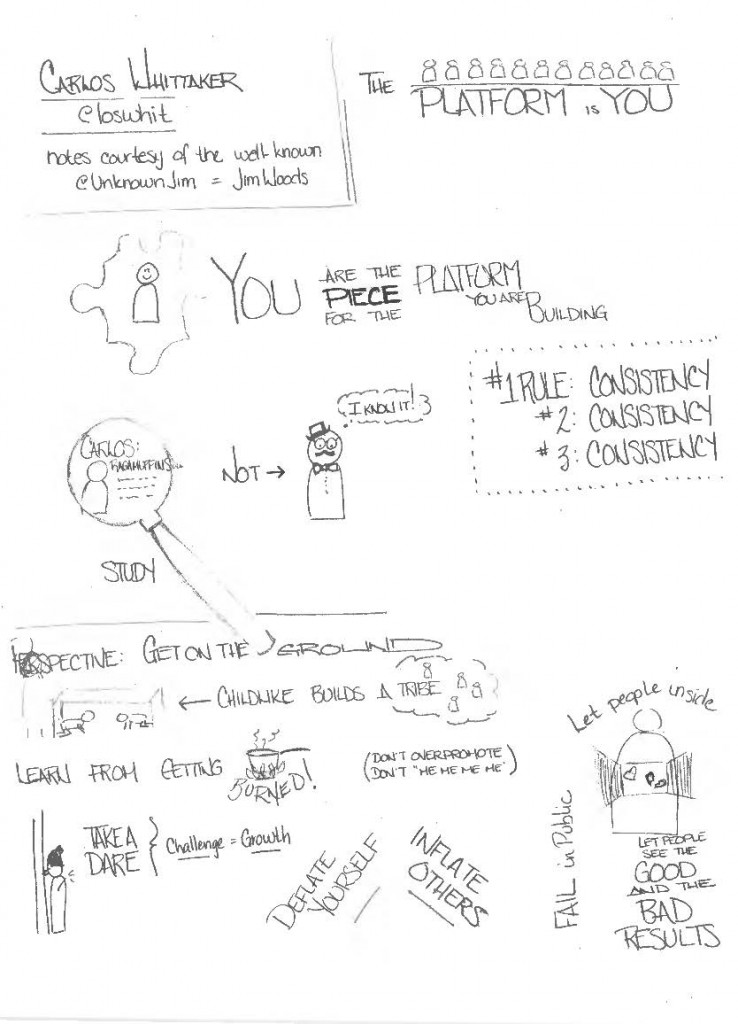 CARLOS WHITTAKER
@loswhit
notes courtesy of the well known
@UnknownJim = Jim Woods
THE PLATFORM IS YOU
YOU ARE THE PIECE FOR THE PLATFORM YOU ARE BUILDING
#1 RULE: CONSISTENCY
#2: CONSISTENCY
#3: CONSISTENCY
CARLOS:
RAGAMUFFINS...
STUDY
NOT →
I KNOW IT!
PERSPECTIVE: GET ON THE GROUND
← CHILDLIKE BUILDS A TRIBE
LEARN FROM GETTING BURNED!
(DON'T OVERPROMOTE
DON'T "ME ME ME ME")
TAKE A
DARE
Challenge = Growth
DEFLATE
YOURSELF
INFLATE
OTHERS
FAIL in Public
Let people inside
LET PEOPLE
SEE THE
GOOD
AND THE
BAD
RESULTS